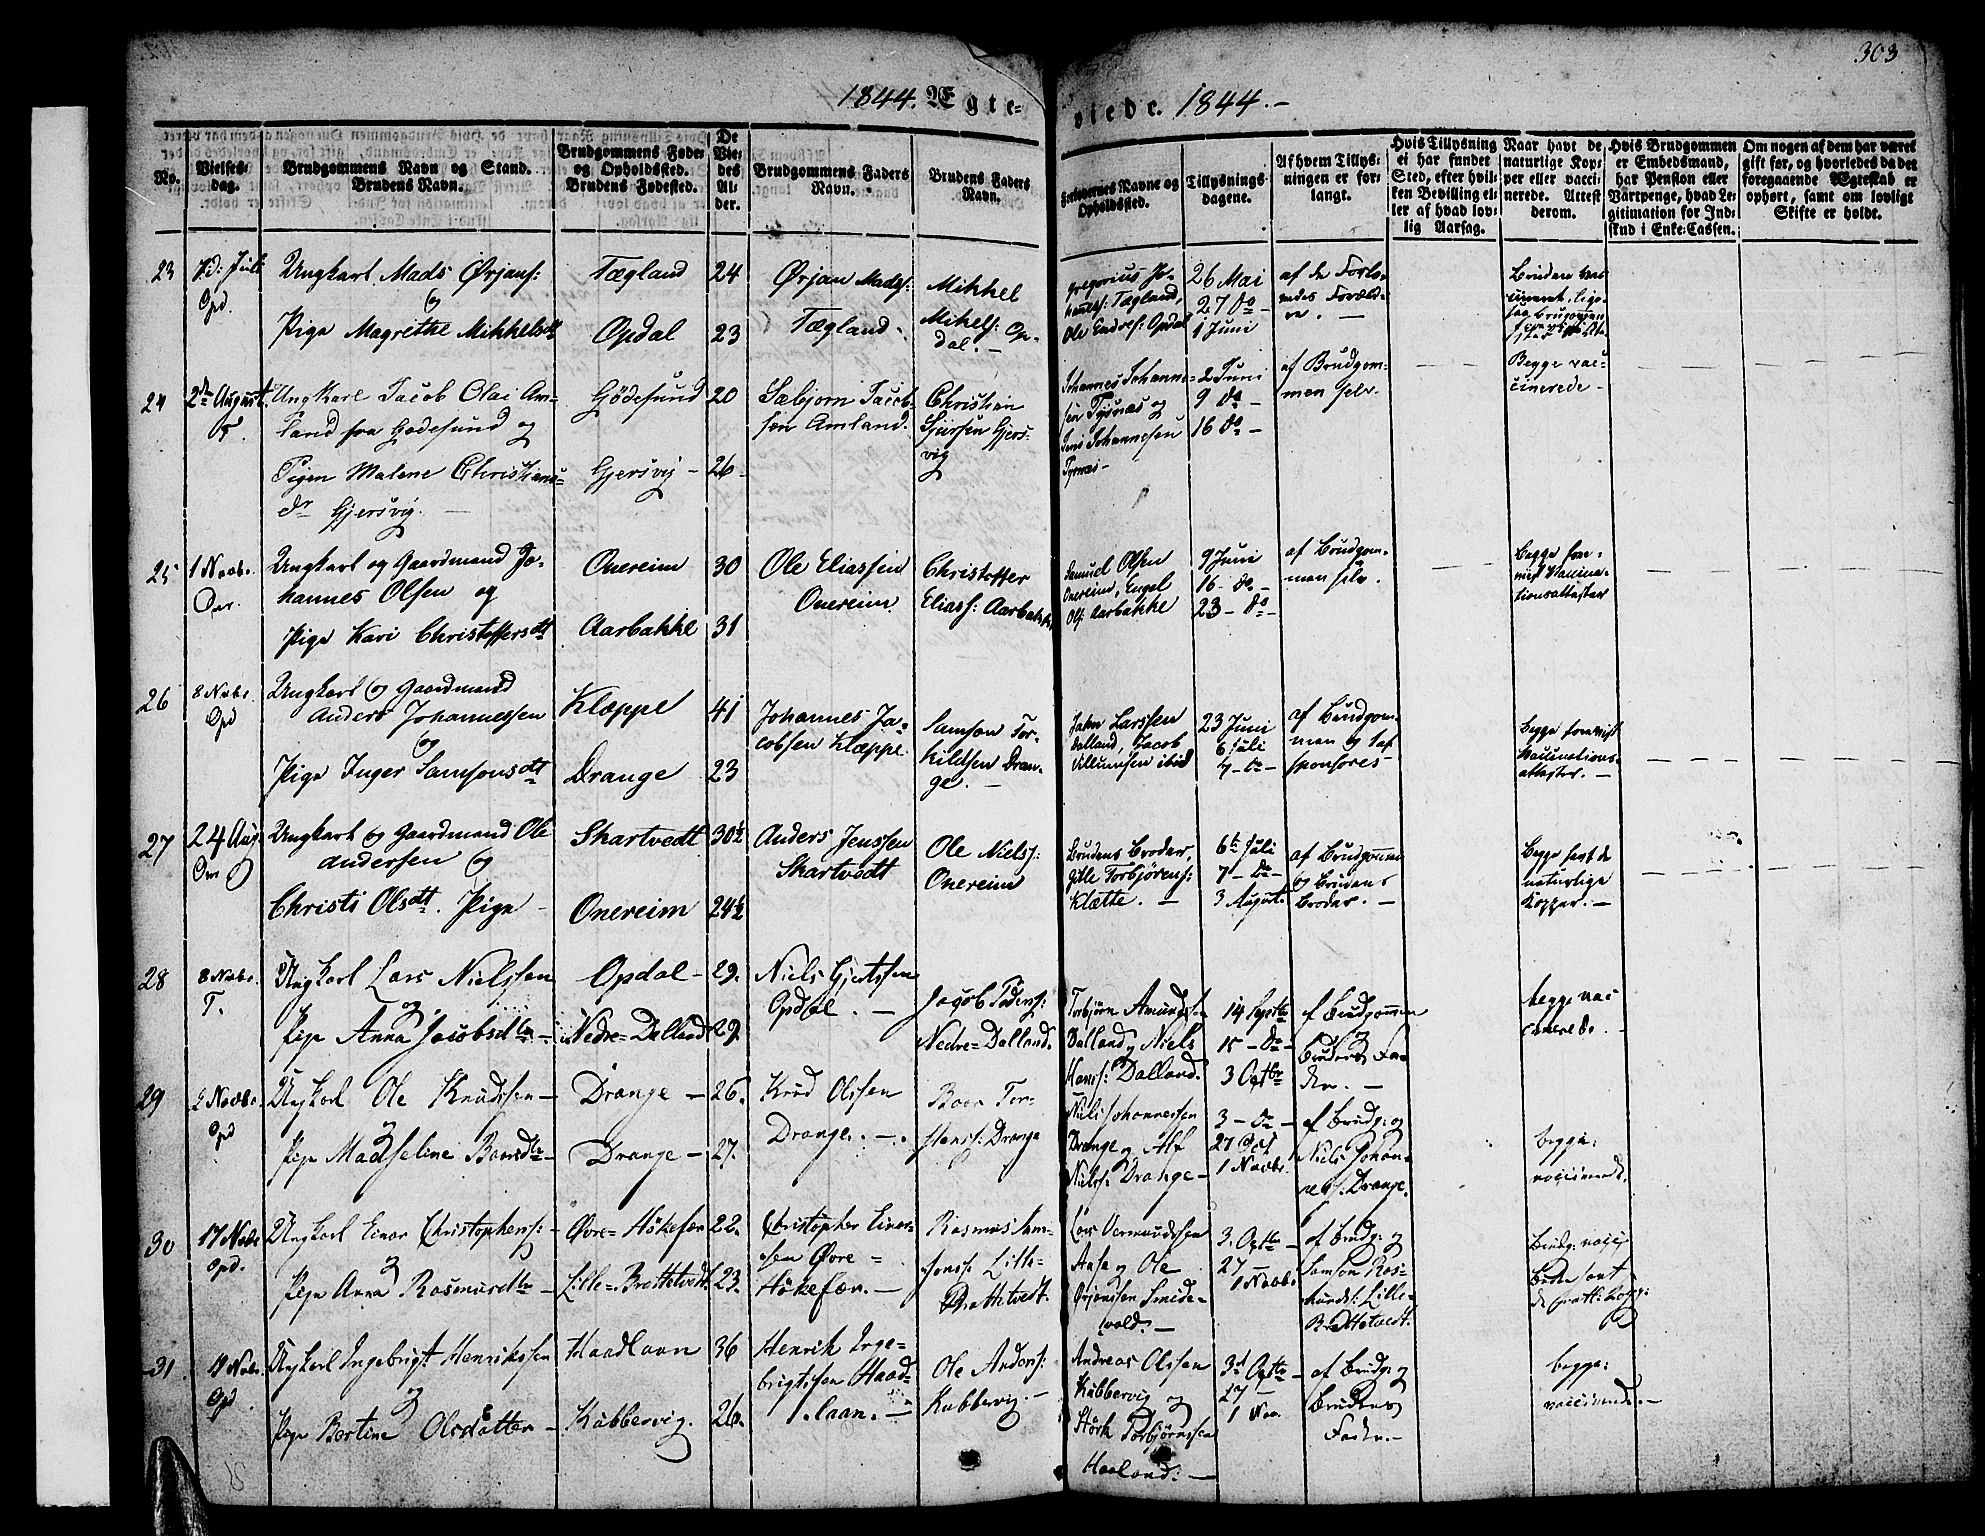 303
1844. Ægte-
viede. 1844.-
No.
Vielses-
dag.
Brudgommens Navn og Stand.
Brudens Navn.
Brudgommens Føde-
og Opholdssted.
Brudens Fødested.
De
Vie-
des
Al-
der.
Brudgommens Faders
Navn.
Brudens Faders
Navn.
Forlovernes Navne og
Opholdssted.
Tillysnings-
dagene.
Af hvem Tillys-
ningen er for-
langt.
Hvis Tillysning
ei har fundet
Sted, efter hvil-
ken Bevilling el-
ler af hvad lov-
lig Aarsag.
Naar havt de
naturlige Kop-
per eller vacci-
nerede. Attest
derom.
Hvis Brudgommen
er Embedsmand,
har Pension eller
Vartpenge, hvad Le-
gitimation for Ind-
skud i Enke-Cassen.
Om nogen af dem har været
gift før, og hvorledes da det
foregaaende Ægteskab er
ophørt, samt om lovligt
Skifte er holdt.
23
Opd.
Ungkarl Mads Ørjans:
og
Pige Magrethe Mikkelsdt
Tægland
Opdal
24
23
Ørjan Mads:
Tægland.
Mikkel
Mikels: Op-
dal.-
Gregorius Jo-
Tægland,
Ole Endres: Opdal
26 Mai
27 do -
1 Juni
af de Forlo-
vedes Foreld-
re. -
24
2den August
T.
Ungkarl Jacob Olai Am-
land fra Godesund og
Pigen Malene Christians-
dr Gjersvig.
Gödesund
Gjersvig -
20
26
Sæbjorn Jacob-
sen Amland.
Christian
Sjursen Gjers-
vig
Johannes Johanne-
sen Tysnæs og
Jens Johannesen
Tysnæs-
2 Juni
9 do -
16 do -
af Brudgom-
men selv.
Begge vac-
cinerede -
25
1 Novbr.
Onr.
Ungkarl og Gaardmand Jo-
hannes Olsen og
Pige Kari Christoffersdtt
Onereim
Aarbakke
30
31
Ole Eliassen
Onereim
Christoffer
Eliass: Aarbakke
Samuel Olsen
Onereim, Engel
Ols: Aarbakke
9 Juni
16 - do -
23 - do -
af Brudgom-
men selv.
Begge fore-
vist Vaccina-
tionsattester
26
8 Novbr.
Opd
Ungkarl og Gaardmand
Anders Johannessen
og
Pige Inger Samsonsdtt
Klæppe
Drange
41
23
Johannes Ja-
cobsen Klæppe.
Samson Tor-
kildsen Dran-
ge. -
John Larssen
Dalland, Jacob
Villumsen ibid
23 Juni
6 Juli
7 - do -
af Brudgom-
men og 1 af
sponsores-
Begge forevist
Vaccinations-
attester. -
27
24 Aug
Onr
Ungkarl og Gaardmand Ole
Andersen og
Christi Olsdtt. Pige -
Skartvedt
Onereim
30½
24½
Anders Jenssen
Skartvedt
Ole Niels:
Onereim
Brudens Broder,
Gitle Torbjørens:
Klætte. -
6te Juli
7 - do -
3 August
af Brudgommen
og Brudens
Broder. -
Begge havt de
naturlige
Kopper. -
28
8 Novbr.
T.
Ungkarl Lars Nielssen
og
Pige Anna Jacobsdtr -
Opdal -
Nedre=Dalland
29.
29.
Niels Gjertssen
Opdal. -
Jacob Pedens:
Nedre=Dalland.
Torbjörn Amundssen
Dalland og Niels
Hans: Dalland.
14 Septbr
15 - do -
3 Octbr
af Brudgommen
og
Brudens Fa-
der. -
begge vac-
cinerede. -
29
Novbr.
Opd
Ungkarl Ole Knudssen -
og
Pige Madseline Baardtr -
Drange -
Drange -
26.
27.
Knud Olssen
Drange. -
Baar Tor-
stens: Drange
Niels Johannessen
Drange og Alf
Niels: Drange -
3 - do -
27 Oct
1 Novbr.
af Brudg: og
Niels Johan-
nes: Drange.
begge
vaccinerede.
30
17 Novbr
Opd.
Ungkarl Einar Christophers: -
og
Pige Anna Rasmusdtr -
Øvre=Hökefæn
Lille=Brettetvedt.
22.
23.
Christopher Einar-
sen Øvre =
Hökefæn. -
Rasmus Sam-
sons: Lille-
Brettetvedt.
Lars Vermundssen
Aase og Ole
Ørjanssen Smide-
vold. -
3. Octbr -
27 -
1 Novbr.
af Brudg: og
Samson Ras-
munds: Lille-
Brettetvedt.
31
Novbr.
Opd
Ungkarl Ingebrigt Henrikssen
og
Pige Bertine Olsdatter -
Haadlaan
Kubbervig.
36
26.
Henrik Inge-
brigtssen Haad-
laan. -
Ole Anders:
Kubbervig. -
Andreas Olssen
Kubbervig og
Störk Torbjørnssen
Haaland. -
3d Octbr -
27 -
1 Nov.
af Brudg: og
Brudens
Fader. -
begge
vaccinerede. -